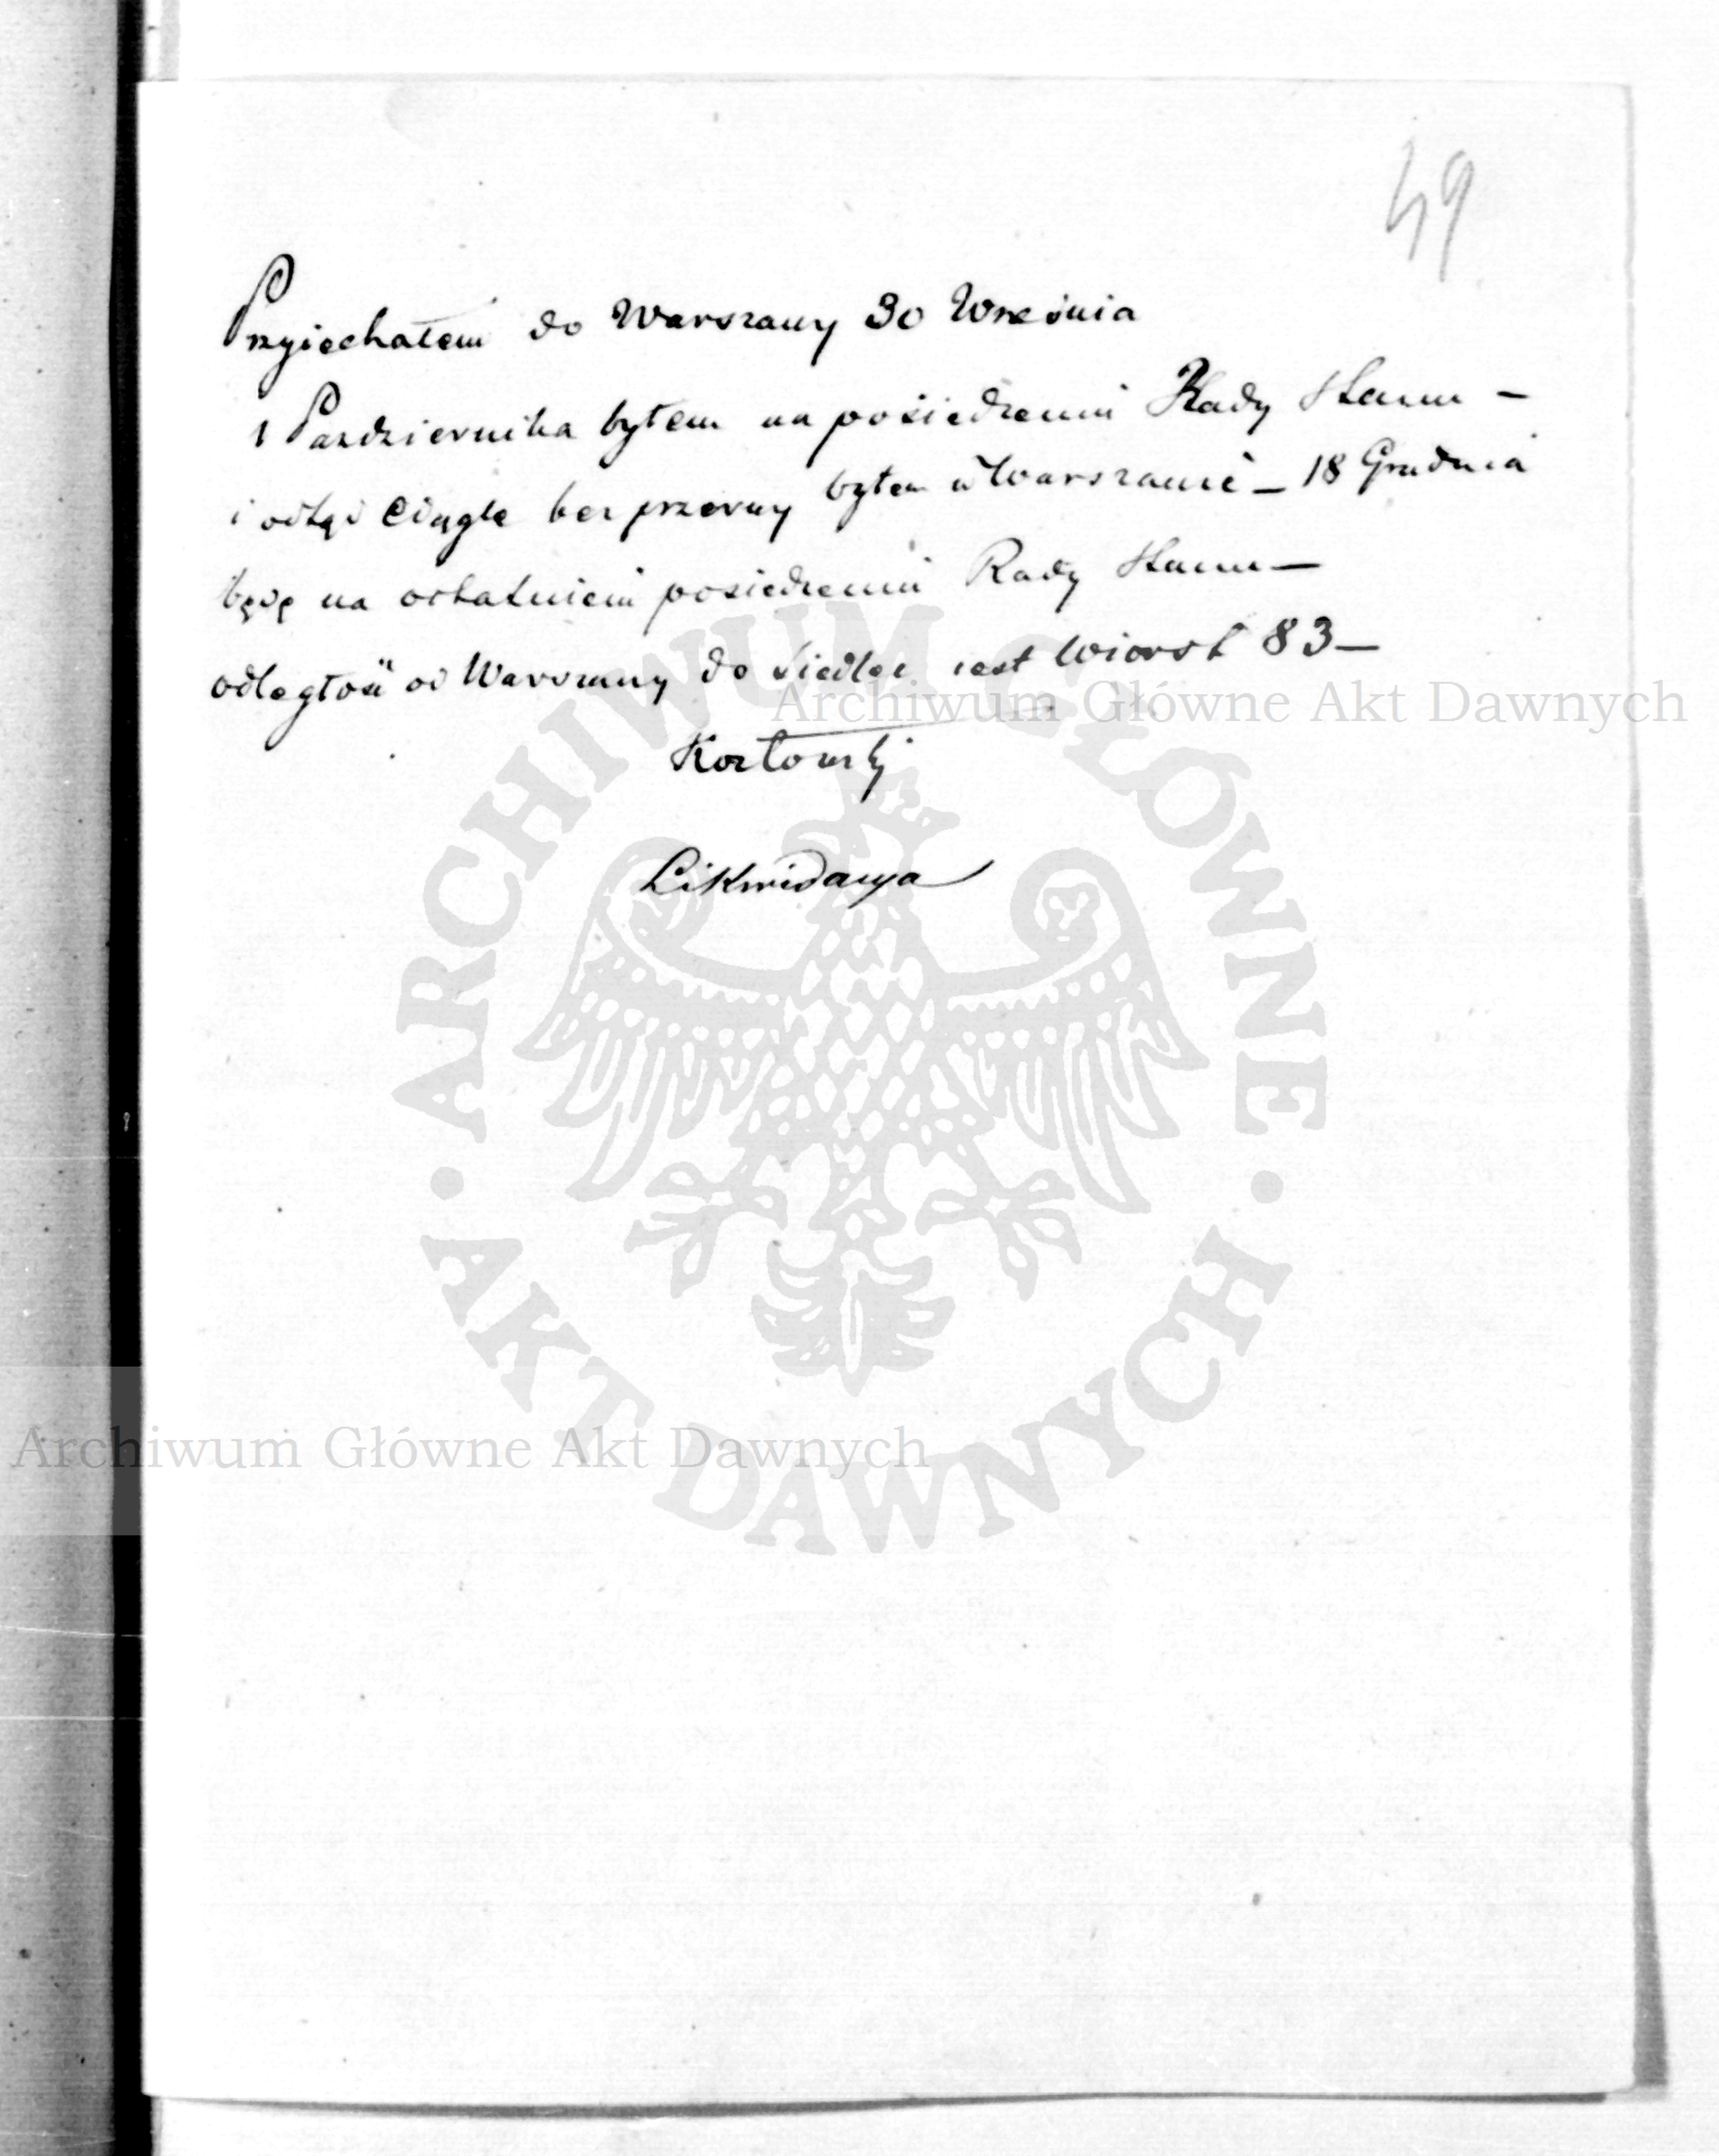 49
Przyiechałem do Warszawy 30 Września
1 Pazdziernika byłem na posiedzeniu Rady Stanu –
i odtąd ciągle bez przerwy byłem w Warszawie – 18 Grudnia
będę na ostatniem posiedzeniu Rady Stanu –
odległość od Warszawy do Siedlec iest Wiorst 83 –
Kozłowski
Likwidacya
Archiwum Główne Akt Dawnych
ARCHIWUM GŁÓWNE
· AKT DAWNYCH ·
Archiwum Główne Akt Dawnych